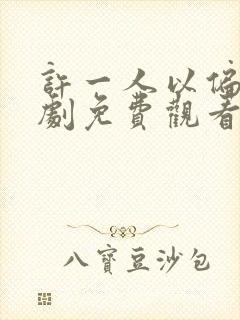 許一人以偏
劇免費觀看
八寶豆沙包